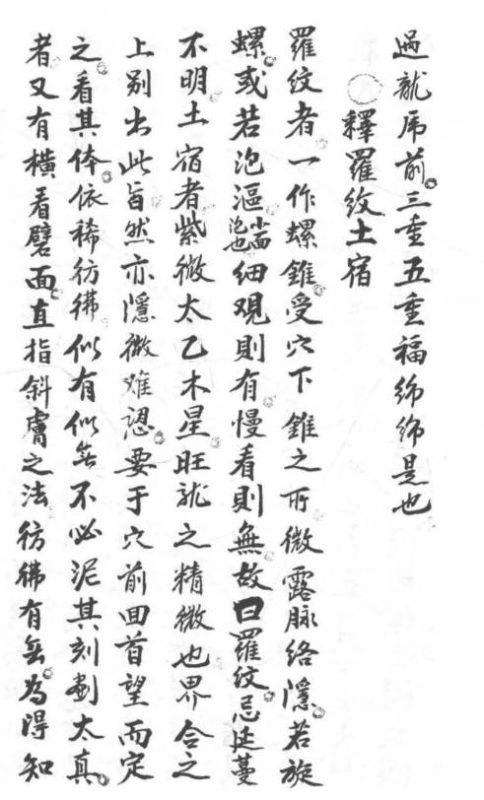 過龍虎前三重五重福綿綿是也
○釋羅紋土宿
羅紋者一作螺錐受穴下錐之所微露脉絡隱若旋
螺或若泡漚小面泡也細观則有慢看則無故曰羅紋忌延蔓
不明土宿者紫微太乙木星旺龙之精微也界合之
上别出此旨然亦隱微难認要于穴前回首望而定
之看其体依稀彷彿似有似無不必泥其刻劃太真
者又有橫看劈面直指斜膚之法彷彿有無為得知